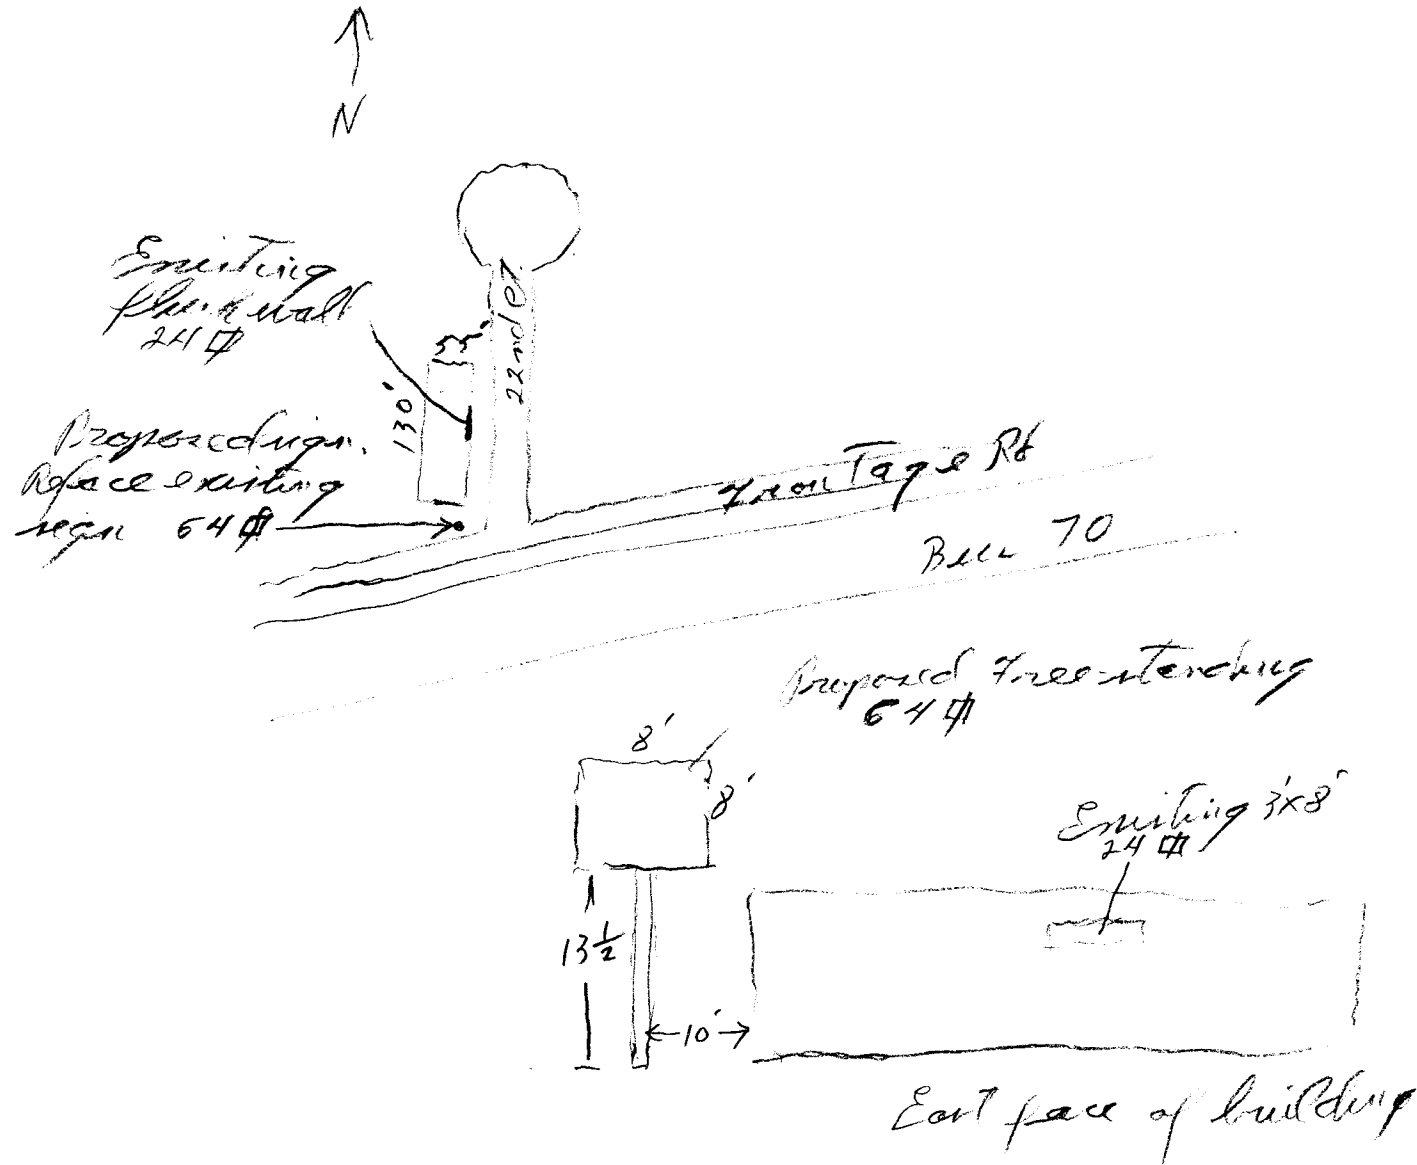 N
Existing
flush wall
24 ⏍
55'
130'
22nd Ct
Proposed sign.
Reface existing
sign 64 ⏍
Frontage Rd
Bus 70
Proposed Freestanding
64 ⏍
8'
8'
Existing 3'x8'
24 ⏍
13 1/2
10'
East face of building